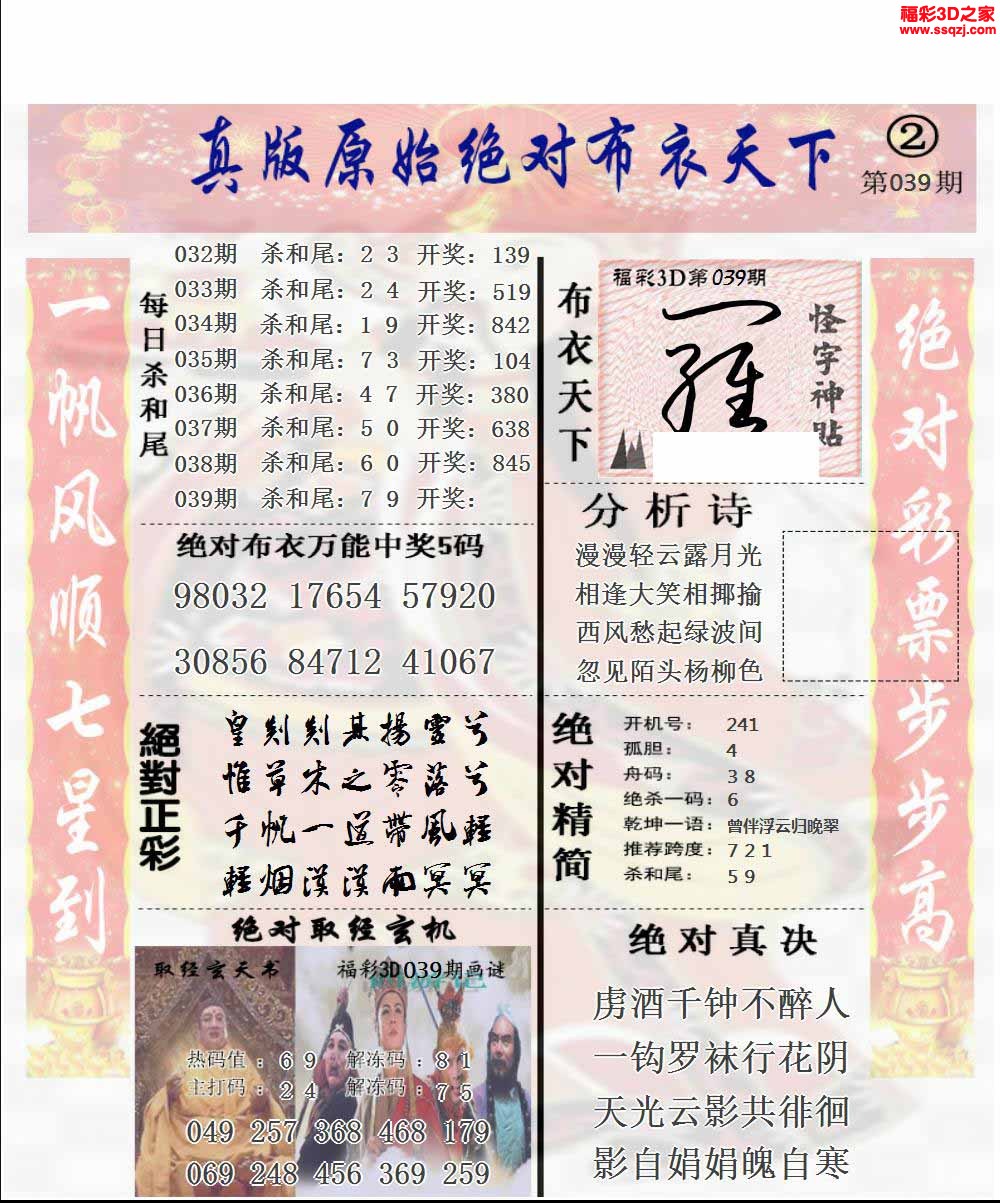 福彩3D之家
www.ssqzj.com
真版原始绝对布衣天下
②
第039期
一帆风顺七星到
每日杀和尾
032期 杀和尾: 2 3 开奖: 139
033期 杀和尾: 2 4 开奖: 519
034期 杀和尾: 1 9 开奖: 842
035期 杀和尾: 7 3 开奖: 104
036期 杀和尾: 4 7 开奖: 380
037期 杀和尾: 5 0 开奖: 638
038期 杀和尾: 6 0 开奖: 845
039期 杀和尾: 7 9 开奖:
绝对布衣万能中奖5码
98032 17654 57920
30856 84712 41067
絕對正彩
皇剡剡其揚靈兮
惟草木之零落兮
千帆一道帶風輕
輕烟漠漠雨冥冥
绝对取经玄机
取经玄天书
福彩3D039期画谜
热码值 : 6 9 解冻码 : 8 1
主打码 : 2 4 解冻码 : 7 5
049 257 368 468 179
069 248 456 369 259
布衣天下
福彩3D第039期
怪字神贴
分析诗
漫漫轻云露月光
相逢大笑相揶揄
西风愁起绿波间
忽见陌头杨柳色
绝对精简
开机号: 241
孤胆: 4
舟码: 3 8
绝杀一码: 6
乾坤一语: 曾伴浮云归晚翠
推荐跨度: 7 2 1
杀和尾: 5 9
绝对真决
虏酒千钟不醉人
一钩罗袜行花阴
天光云影共徘徊
影自娟娟魄自寒
绝对彩票步步高